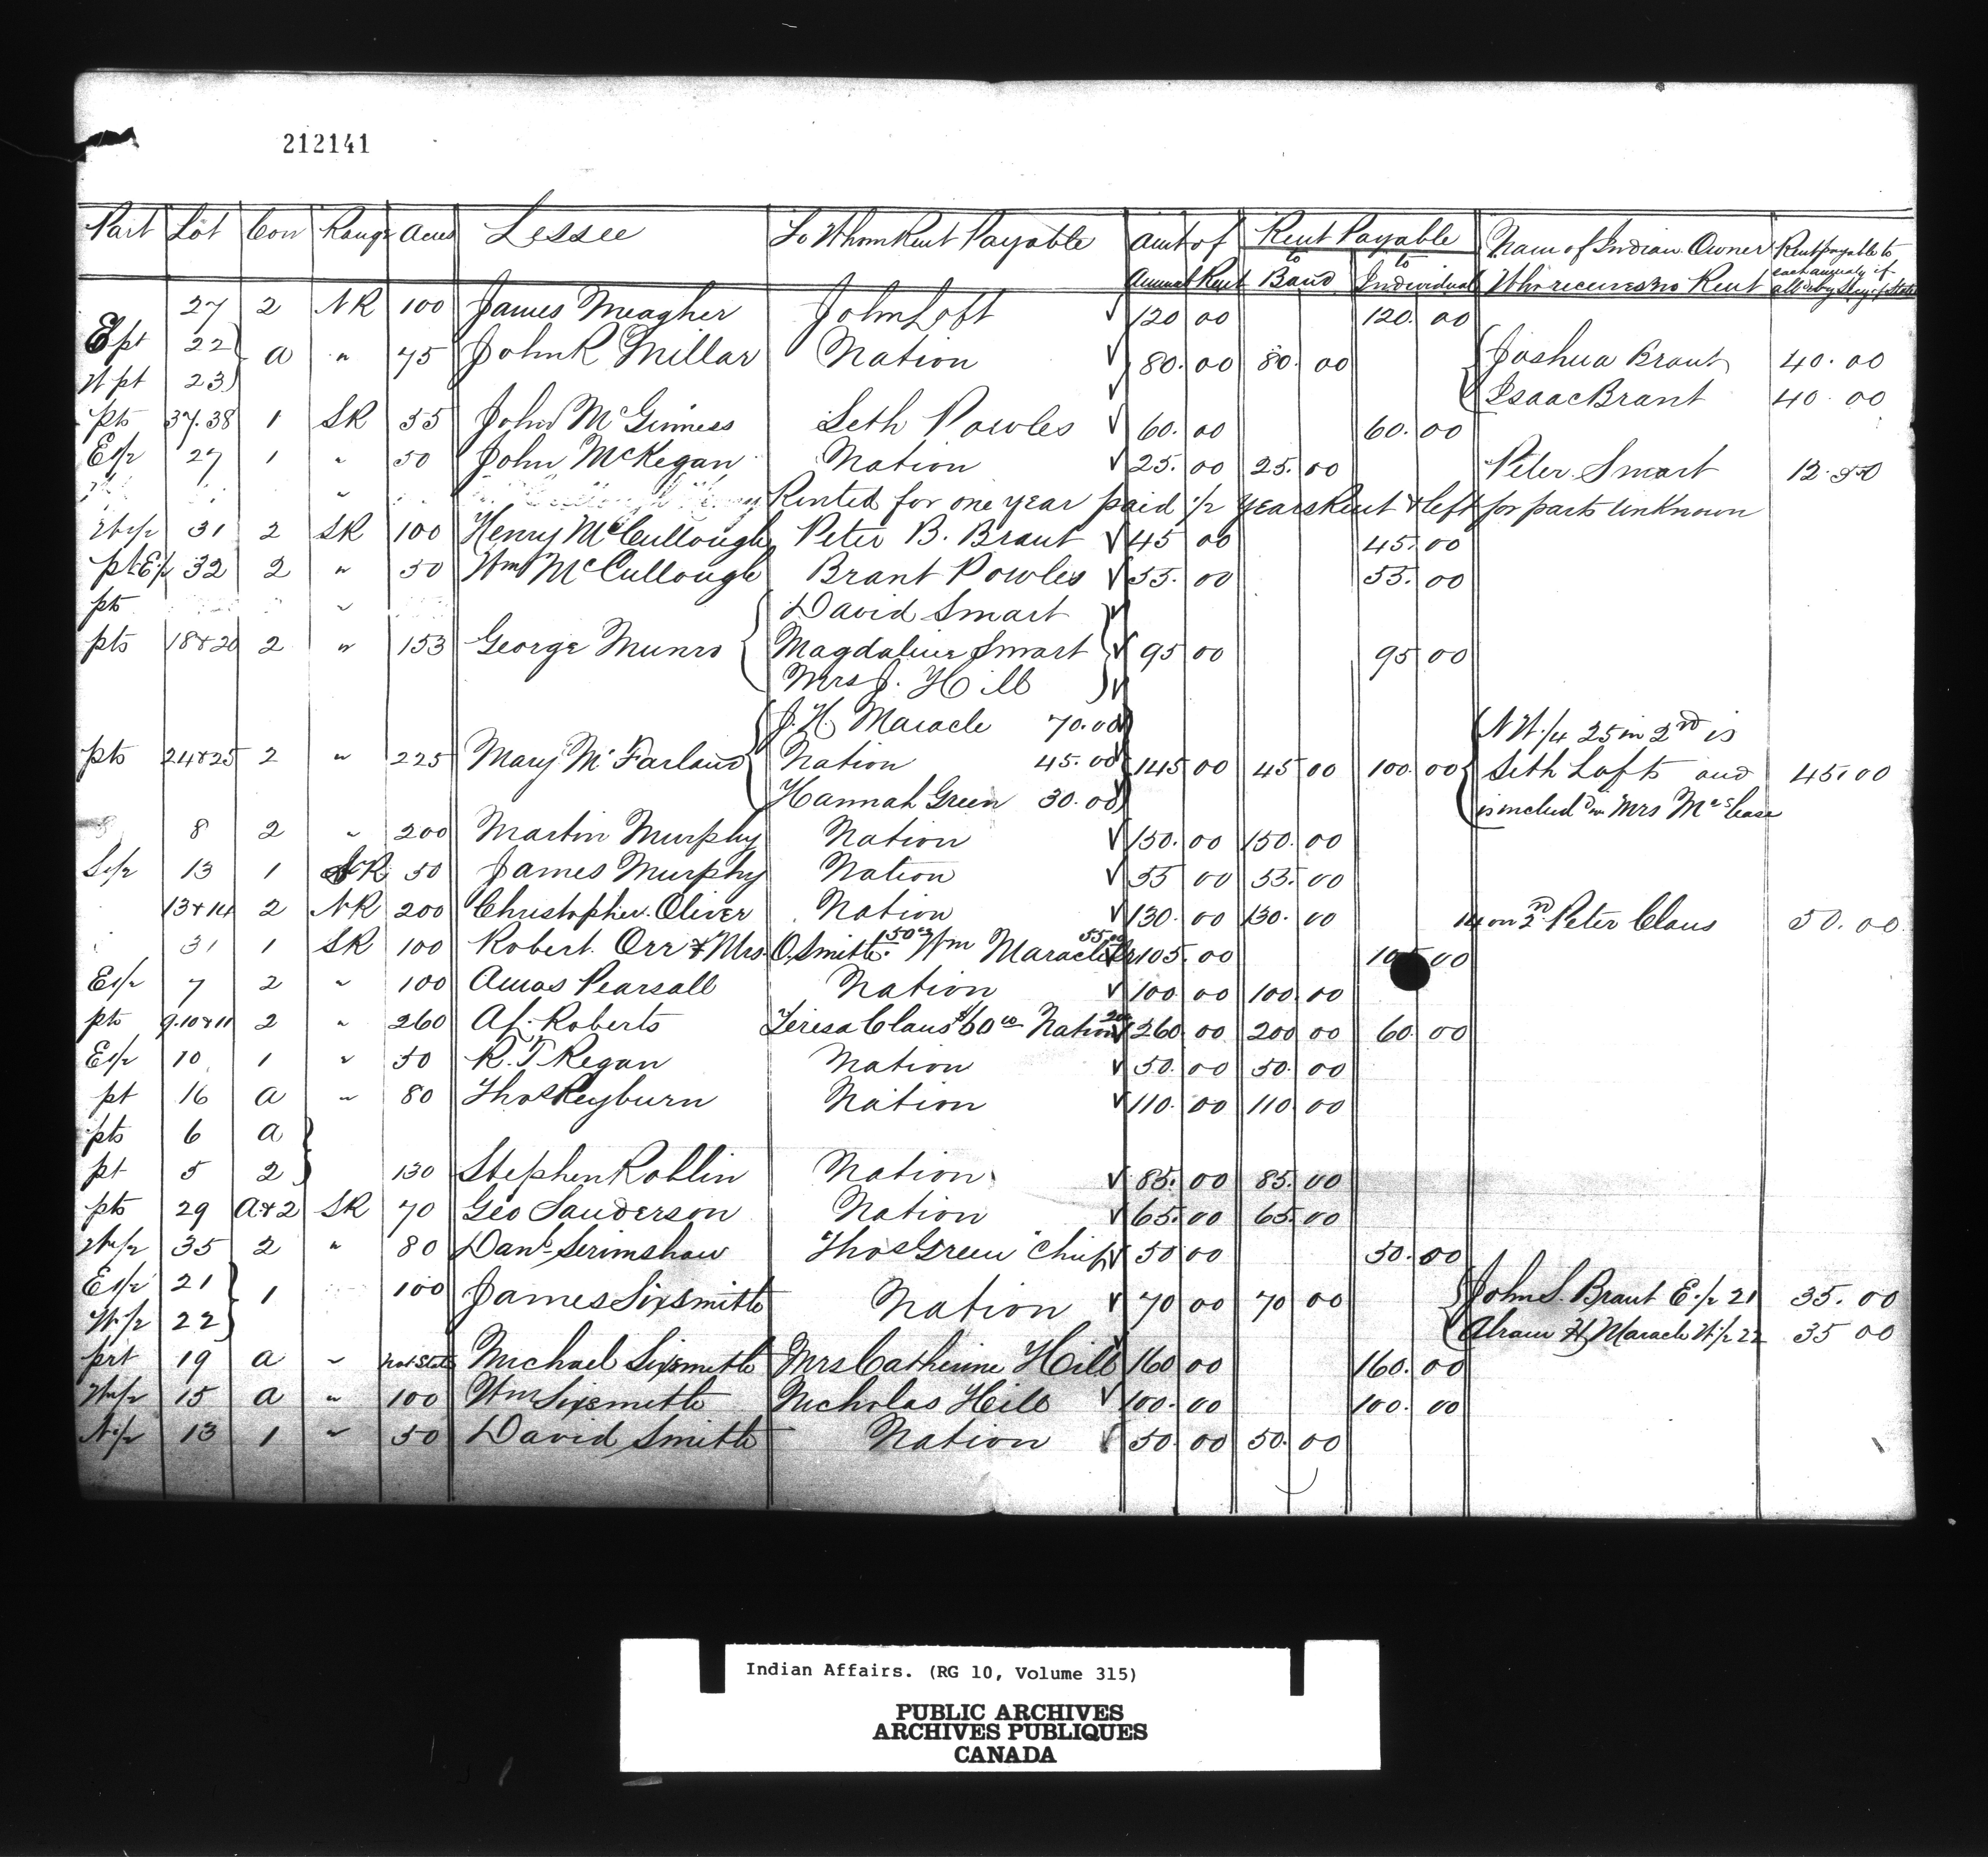 212141
Part Lot Con Range Acres Lessee To Whom Rent Payable Amt of Annual Rent Rent Payable to Band to Individual Name of Indian Owner Who receives no Rent Rent payable to each annualy if alld by Secy of State
27 2 NR 100 James Meagher John Loft ✓ 120 00 120. 00
E pt 22 } a " 75 John R Millar Nation ✓ 80. 00 80. 00 { Joshua Brant 40. 00
W pt 23 } ✓ { Isaac Brant 40. 00
pts 37.38 1 SR 55 John McGinness Seth Powles ✓ 60. 00 60. 00
E 1/2 27 1 " 50 John McKegan Nation ✓ 25. 00 25. 00 Peter Smart 12.50
" Rented for one year paid 1/2 years Rent & left for parts unknown
W 1/2 31 2 SR 100 Henry McCullough Peter B. Brant ✓ 45 00 45. 00
pt E 1/2 32 2 " 50 Wm McCullough Brant Powles ✓ 55. 00 55. 00
pts " { David Smart } ✓
pts 18 & 20 2 " 153 George Munro { Magdaline Smart } ✓ 95 00 95 00
{ Mrs J. Hill } ✓
{ J. H. Maracle 70.00 } { N W 1/4 25 in 2nd is
pts 24 & 25 2 " 225 Mary McFarland { Nation 45.00 } ✓ 145 00 45 00 100 00 { Seth Lofts and 45.00
{ Hannah Green 30.00 } { is includd in Mrs Mcs lease
8 2 " 200 Martin Murphy Nation ✓ 150. 00 150. 00
S 1/2 13 1 NR 50 James Murphy Nation ✓ 55 00 55. 00
13 & 14 2 NR 200 Christopher Oliver Nation ✓ 130. 00 130. 00 14 on 2nd Peter Claus 50. 00
31 1 SR 100 Robert Orr & Mrs. O. Smith. 50 Wm Maracle 55.00 ✓ 105. 00 105 00
E 1/2 7 2 " 100 Amos Pearsall Nation ✓ 100 00 100. 00
pts 9.10 & 11 2 " 260 A. Roberts Teresa Claus $60 00 Nation 200 ✓ 260 00 200 00 60. 00
E 1/2 10 1 " 50 R. T. Regan Nation ✓ 50. 00 50. 00
pt 16 a " 80 Thos Reyburn Nation ✓ 110. 00 110 00
pts 6 a }
pt 5 2 } 130 Stephen Roblin Nation ✓ 85. 00 85. 00
pts 29 A & 2 SR 70 Geo Sanderson Nation ✓ 65. 00 65. 00
W 1/2 35 2 " 80 Danl Scrimshaw Thos Green "Chief" ✓ 50 00 50. 00
E 1/2 21 } 1 100 James Sixsmith Nation ✓ 70 00 70 00 { John S. Brant E 1/2 21 35. 00
W 1/2 22 } { Abram H Maracle W 1/2 22 35 00
prt 19 a " not Stated Michael Sixsmith Mrs Catherine Hill ✓ 160 00 160. 00
W 1/2 15 a " 100 Wm Sixsmith Nicholas Hill ✓ 100. 00 100. 00
N 1/2 13 1 " 50 David Smith Nation ✓ 50 00 50. 00
Indian Affairs. (RG 10, Volume 315)
PUBLIC ARCHIVES
ARCHIVES PUBLIQUES
CANADA